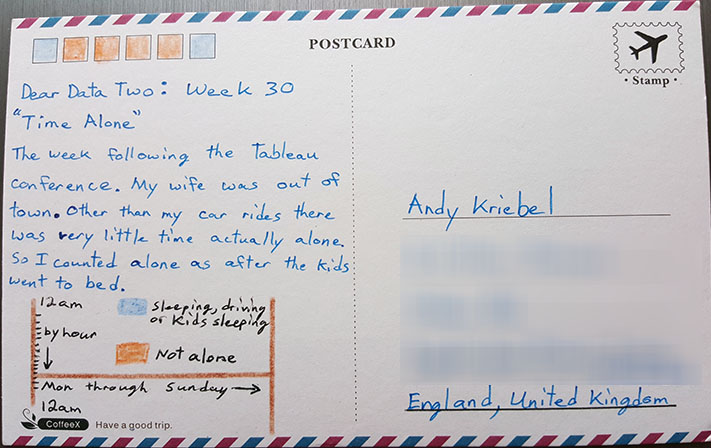 POSTCARD
• Stamp •
Dear Data Two: Week 30
"Time Alone"
The week following the Tableau
conference. My wife was out of
town. Other than my car rides there
was very little time actually alone.
So I counted alone as after the kids
went to bed.
12am
by hour
Mon through Sunday
12am
sleeping, driving
or Kids sleeping
Not alone
CoffeeX
Have a good trip.
Andy Kriebel
England, United Kingdom